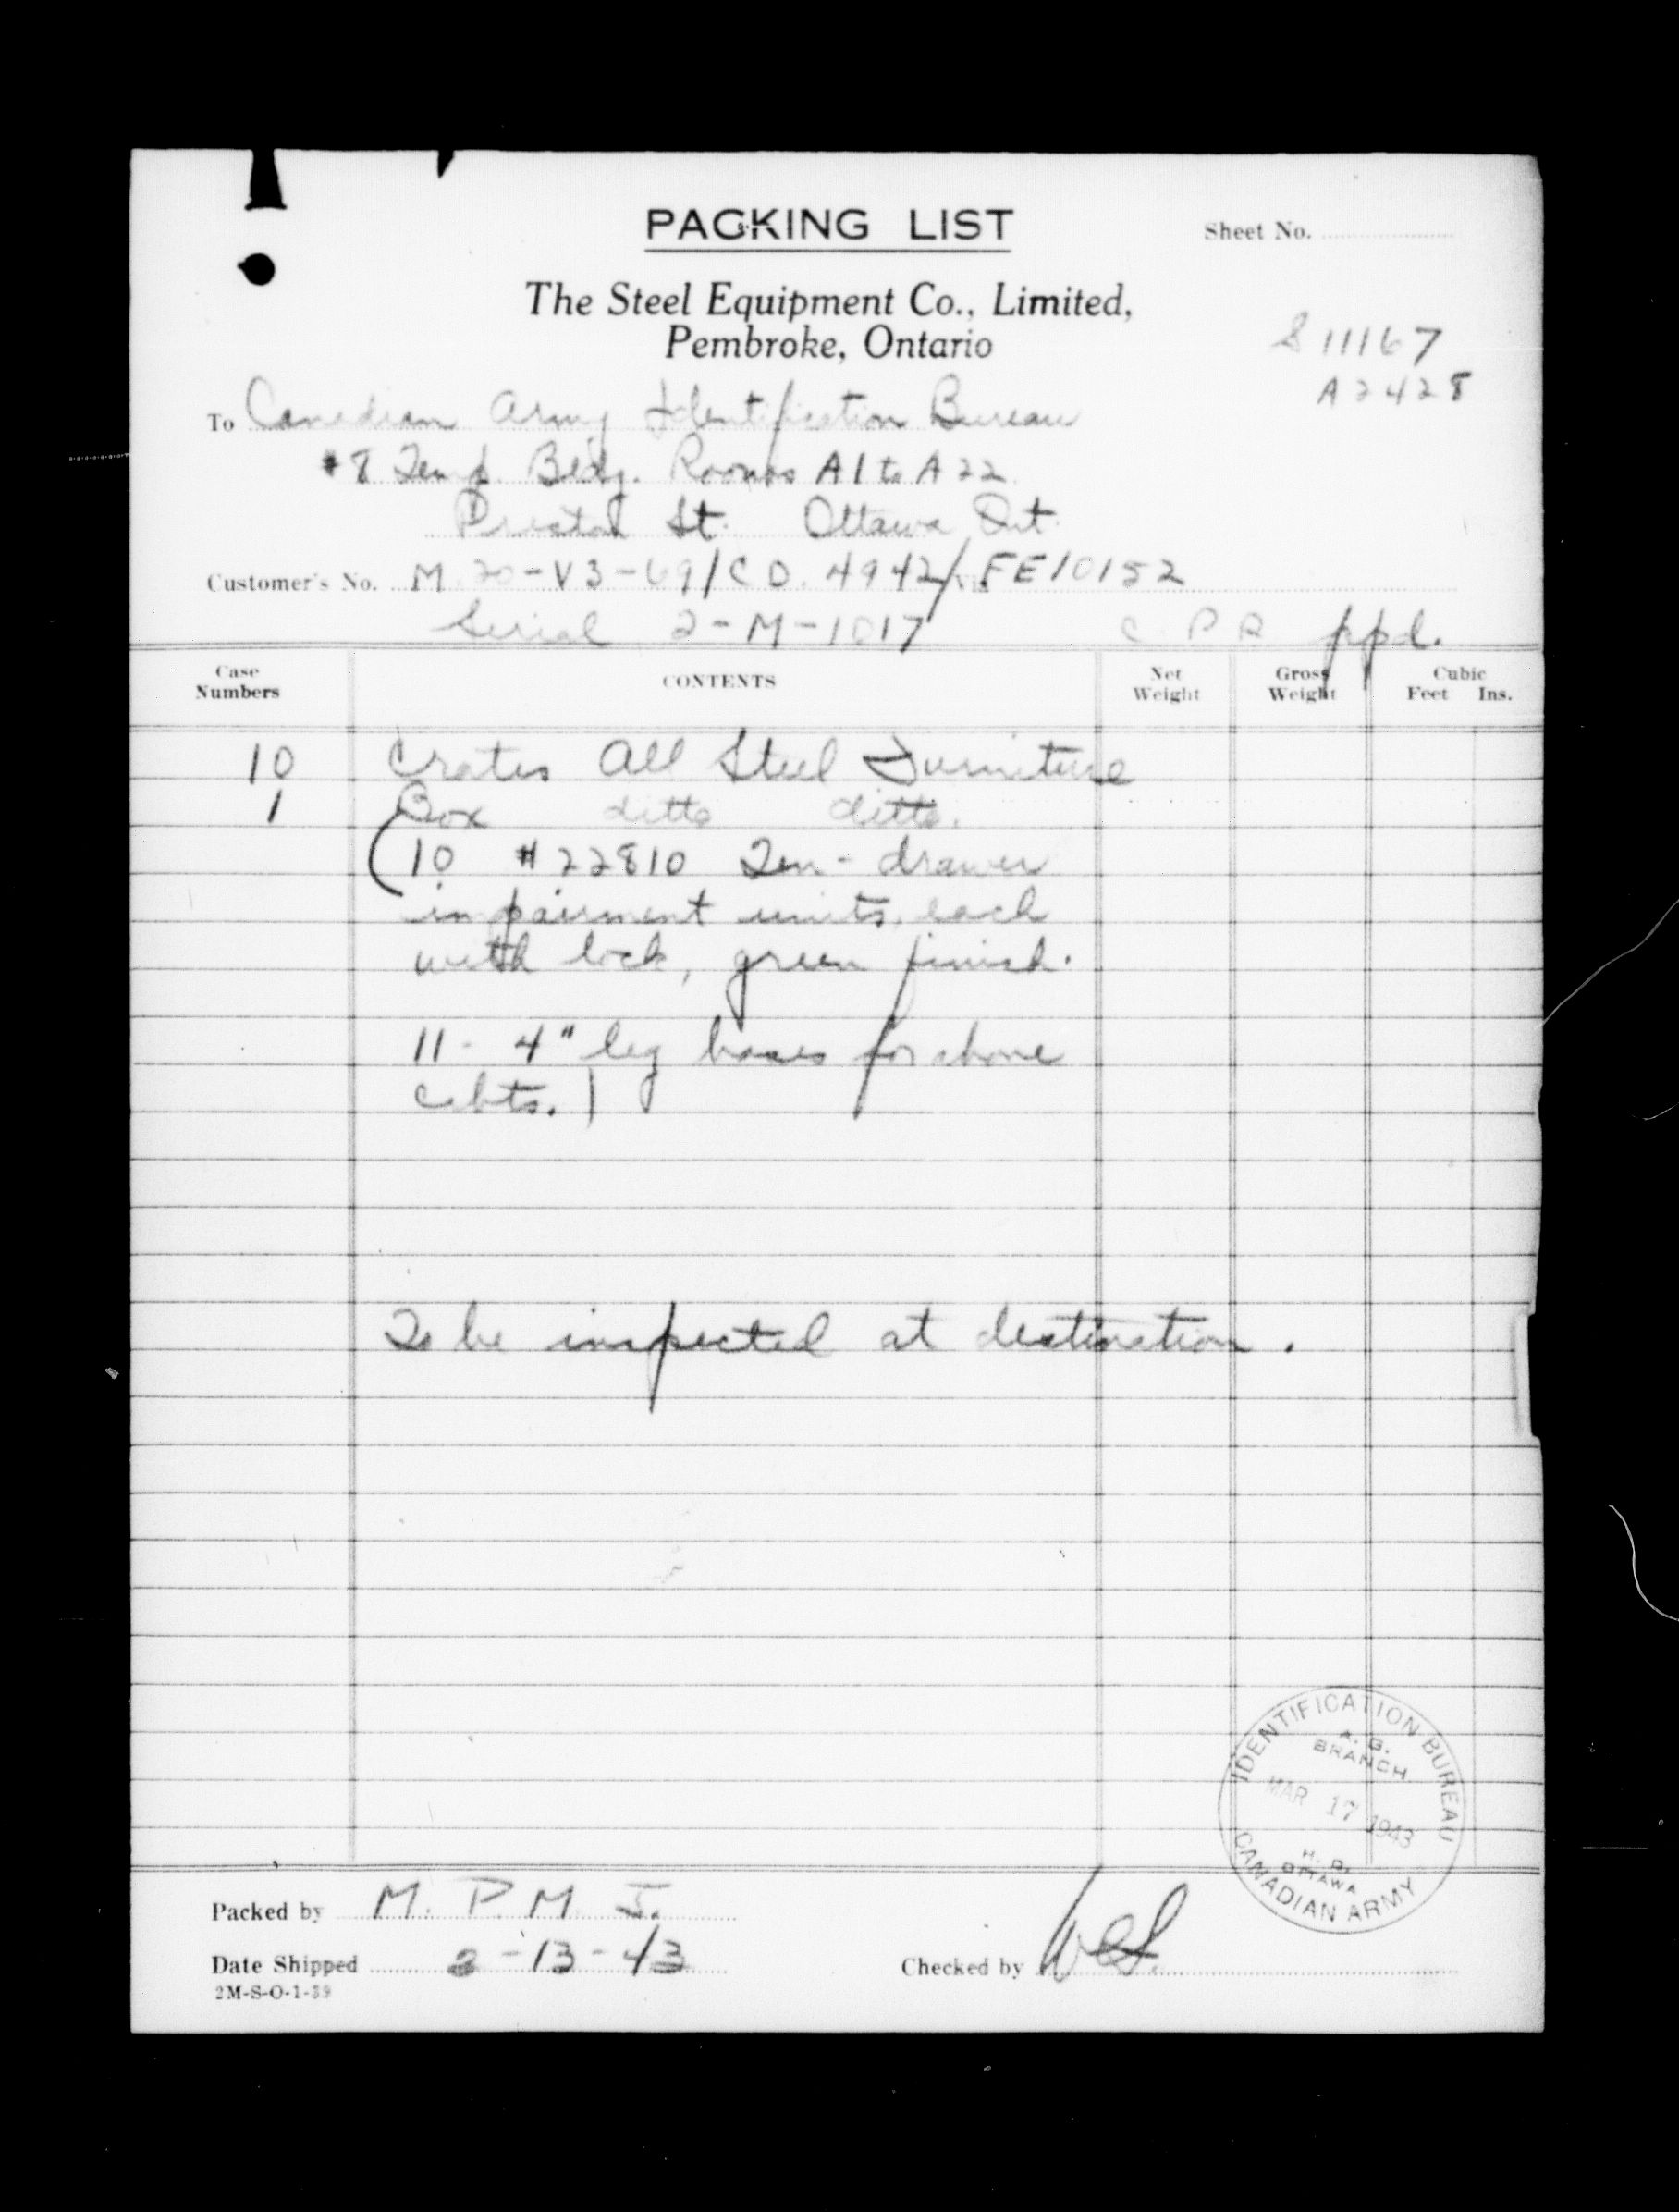 PACKING LIST
Sheet No.
The Steel Equipment Co., Limited,
Pembroke, Ontario
S 11167
A2428
To Canadian Army Identification Bureau
#8 Temp. Bldg. Rooms A1 to A22
Preston St. Ottawa Ont.
Customer's No. M 70-V3-69/CD. 4942/ Via FE10152
Serial 2-M-1017 C P R ppd.
Case Numbers CONTENTS Net Weight Gross Weight Cubic Feet Ins.
10 Crates All Steel Furniture
1 Box ditto ditto.
(10 #22810 Ten-drawer
impairment units, each
with lock, green finish.
11- 4" leg bases for above
cabts.)
To be inspected at destination.
IDENTIFICATION BUREAU
A. G.
BRANCH.
MAR 17 1943
H. Q.
OTTAWA
CANADIAN ARMY
Packed by M. P. M. J.
Date Shipped 3-13-43 Checked by
2M-S-O-1-39